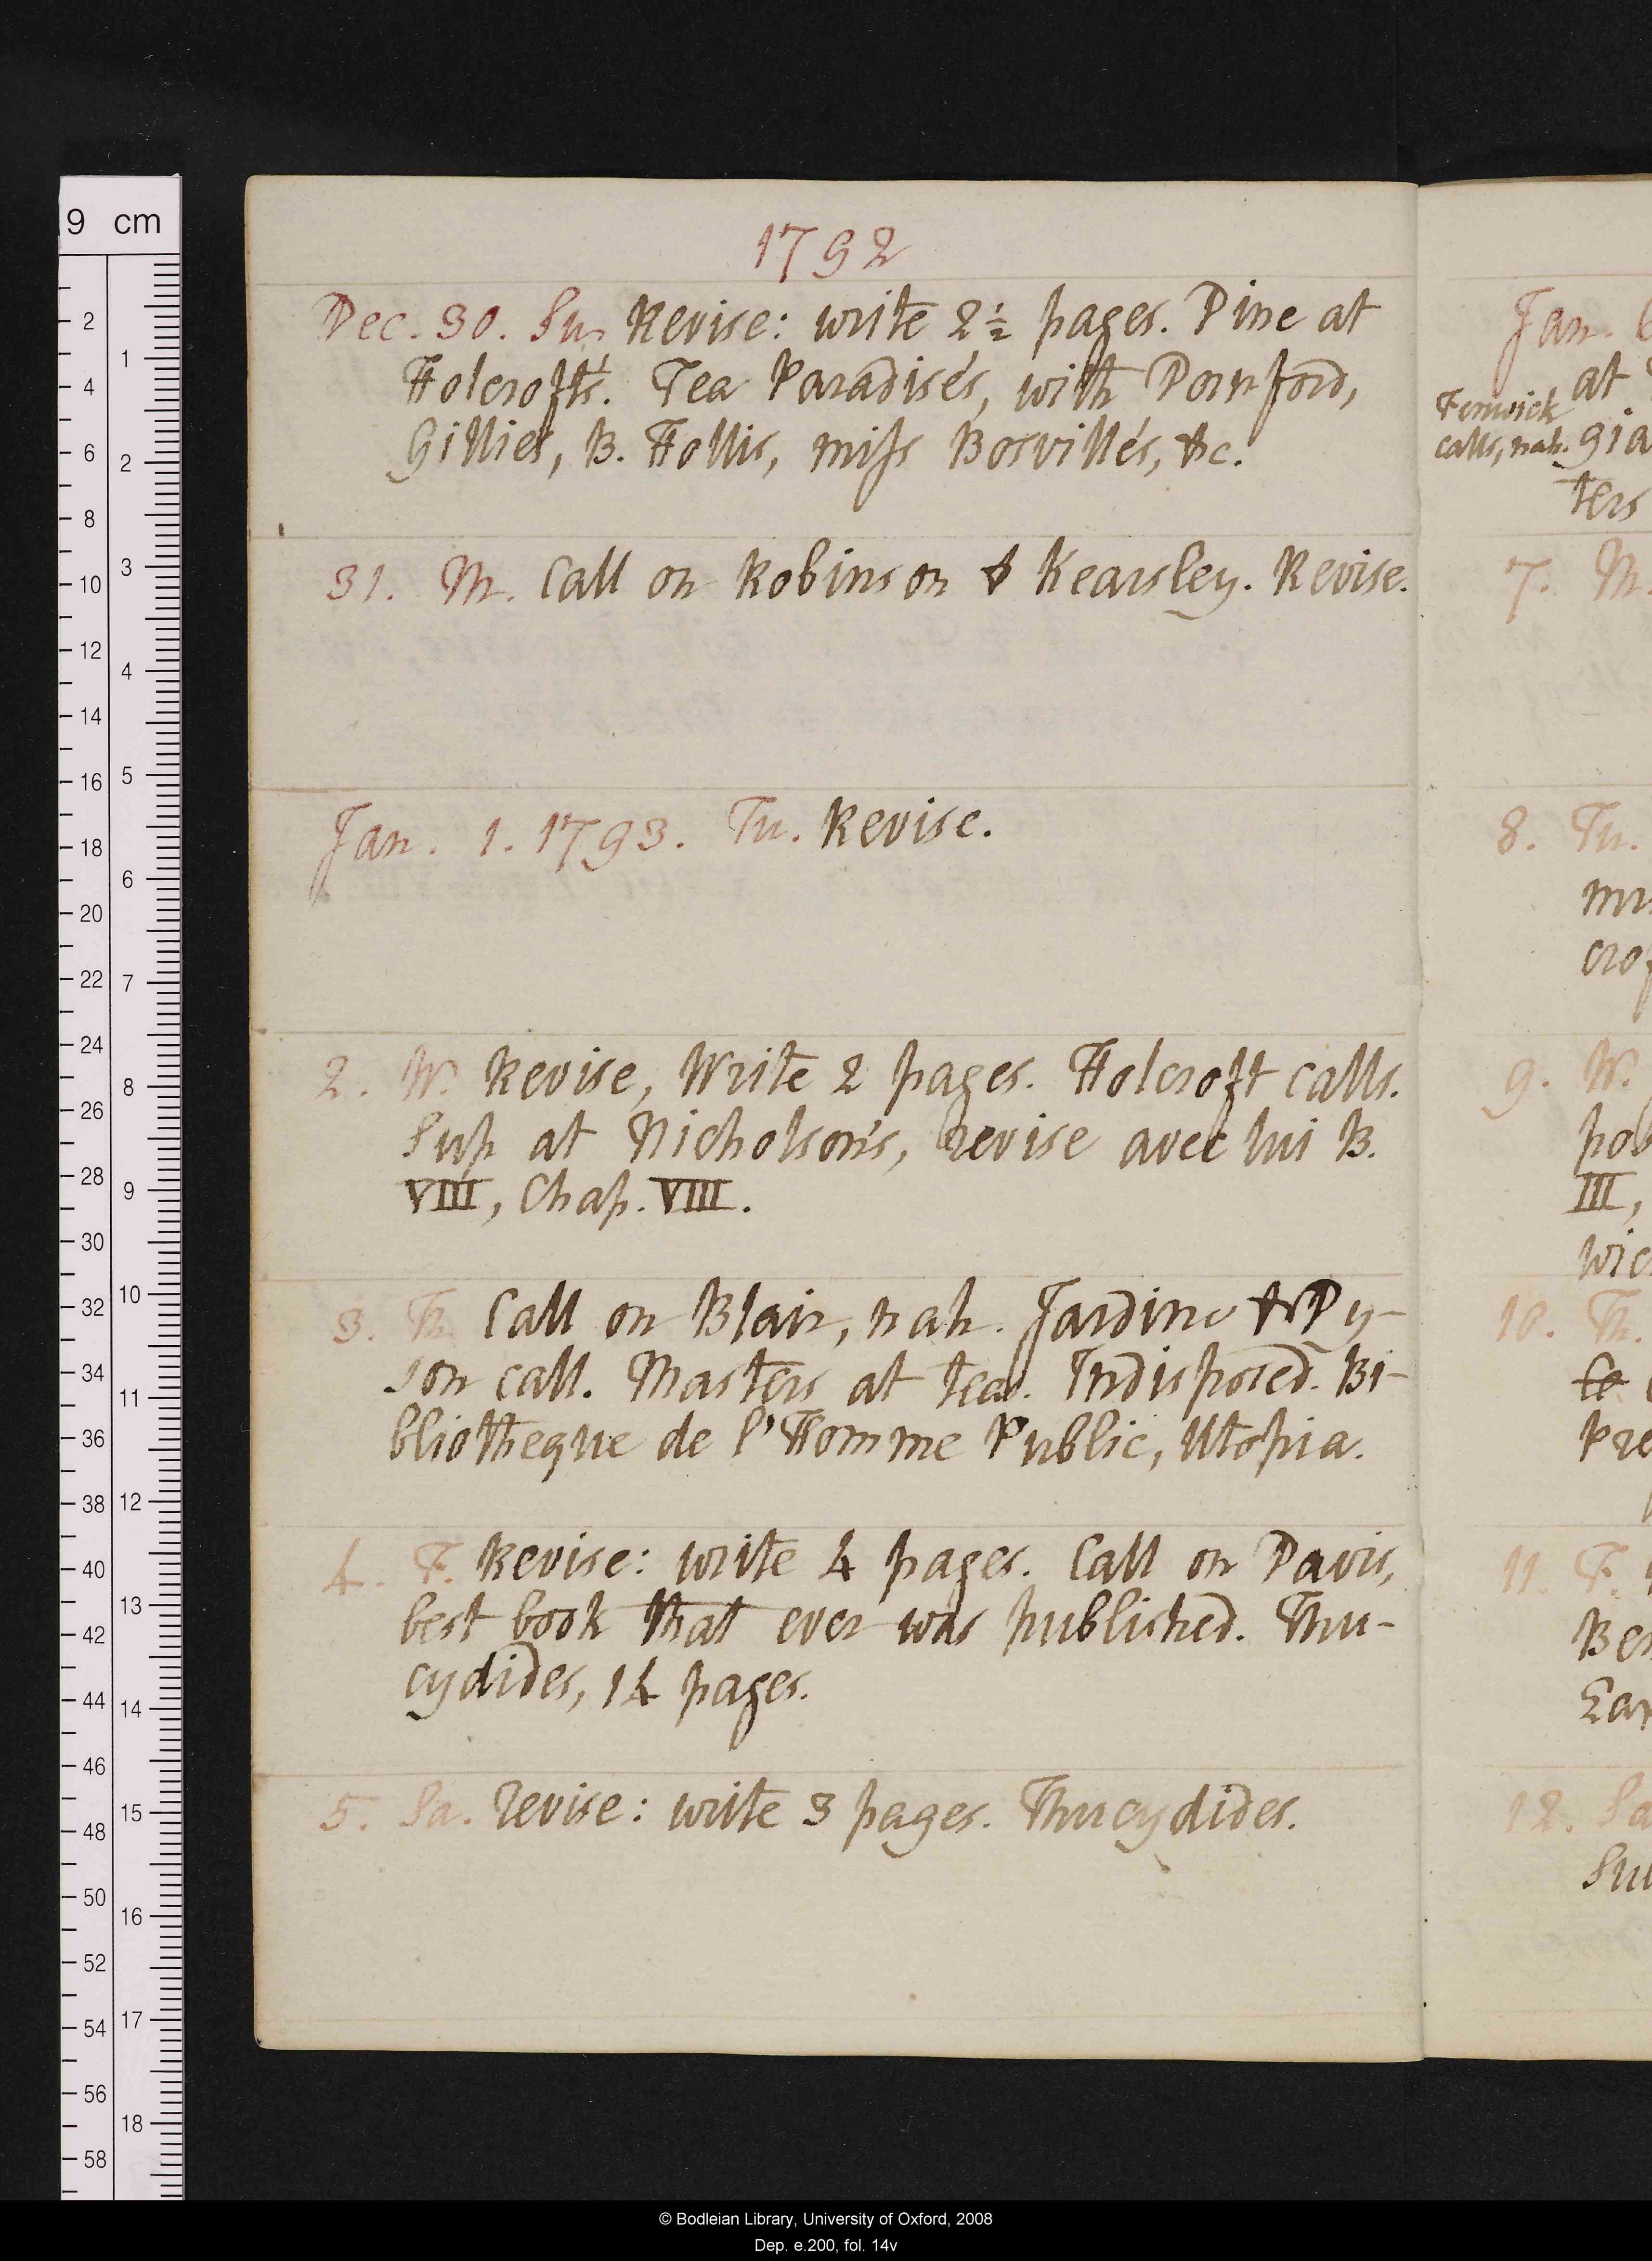 1792
Dec. 30. Su. Revise: write 2½ pages. Dine at
Holcroft's. Tea Paradise's, with Dornford,
Gillies, B. Hollis, miss Bosville's, &c.
31. M. Call on Robinson & Kearsley. Revise.
Jan. 1. 1793. Tu. Revise.
2. W. Revise, Write 2 pages. Holcroft calls.
Sup at Nicholson's, revise avec lui B.
VIII, Chap. VIII.
3. Th. Call on Blair, nah. Jardine & Dy-
son call. Masters at tea. Indisposed. Bi-
bliotheque de l'Homme Public, Utopia.
4. F. Revise: write 4 pages. Call on Davis,
best book that ever was published. Thu-
cydides, 14 pages.
5. Sa. Revise: write 3 pages. Thucydides.
Jan. 6
at
Fenwick
calls, nah. gia
ters
7. M.
8. Tu.
crof
9. W.
pol
III,
wic
10. Th.
Pre
11. F.
Be
Ear
12. Sa
Su
9 cm
2 4 6 8 10 12 14 16 18 20 22 24 26 28 30 32 34 36 38 40 42 44 46 48 50 52 54 56 58
1 2 3 4 5 6 7 8 9 10 11 12 13 14 15 16 17 18
© Bodleian Library, University of Oxford, 2008
Dep. e.200, fol. 14v